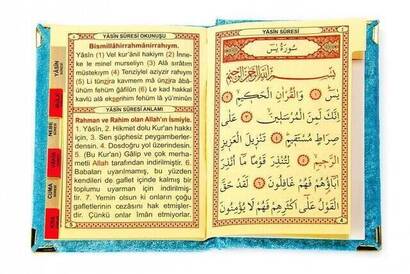 YÂSÎN SÛRESİ OKUNUŞU
Bismillâhirrahmânirrahıym.
Yâsîn (1) Vel kur'ânil hakiym (2) İnne-
ke le minel murseliyn (3) Alâ sırâtım
müstekıym (4) Tenziylel aziyzir rahıym
(5) Li tünzira kavmem mâ ünzira âbâ-
ühüm fehüm ğâfilûn (6) Le kad hakkal
kavlü alâ ekserihim fehüm lâ yü'minûn
YÂSÎN SÛRESİ ANLAMI
Rahman ve Rahim olan Allah'ın İsmiyle.
1. Yâsîn, 2. Hikmet dolu Kur'an hakkı
için, 3. Sen şüphesiz peygamberler-
densin. 4. Dosdoğru yol üzerindesin.
5. (Bu Kur'an) Gâlip ve çok merha-
metli Allah tarafından indirilmiştir. 6.
Babaları uyarılmamış, bu yüzden
kendileri de gaflet içinde kalmış bir
toplumu uyarman için indirilmiş-
tir. 7. Yemin olsun ki onların çoğu
gafletlerinin cezasını hak etmişler-
dir. Çünkü onlar îmân etmiyorlar.
YÂSÎN
CUMA
YÂSÎN SÛRESİ
سُورَةُ يٰسٓ
بِسْمِ اللهِ الرَّحْمٰنِ الرَّحِيمِ
يٰسٓ ﴿١﴾ وَالْقُرْاٰنِ الْحَكِيمِ ﴿٢﴾
اِنَّكَ لَمِنَ الْمُرْسَلِينَ ﴿٣﴾ عَلٰى
صِرَاطٍ مُسْتَقِيمٍ ﴿٤﴾ تَنْزِيلَ الْعَزِيزِ
الرَّحِيمِ ﴿٥﴾ لِتُنْذِرَ قَوْمًا مَٓا اُنْذِرَ
اٰبَٓاؤُهُمْ فَهُمْ غَافِلُونَ ﴿٦﴾ لَقَدْ حَقَّ
الْقَوْلُ عَلٰٓى اَكْثَرِهِمْ فَهُمْ لَا يُؤْمِنُونَ